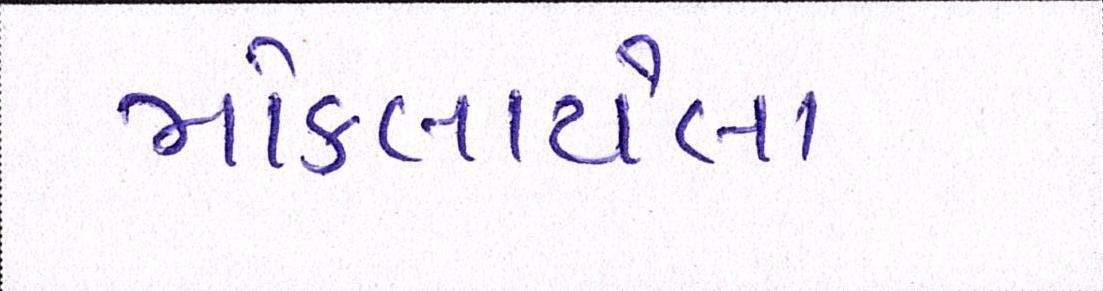 મોકલાયેલા